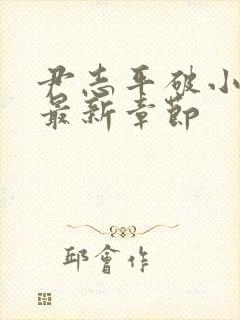 尹志平破小
最新章節
邱會作